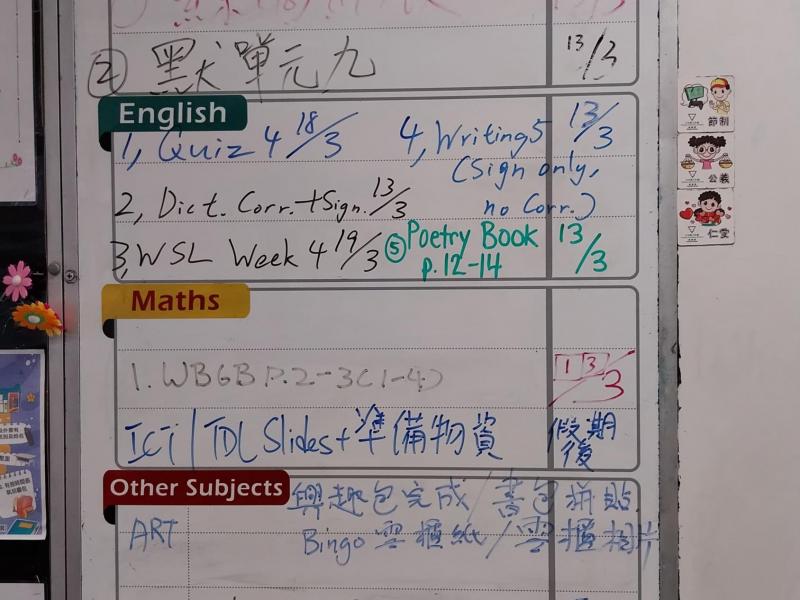 ② 默單元九 13/3
English
1, Quiz 4 18/3
4, Writing 5 13/3
(Sign only,
no Corr.)
2, Dict. Corr. + Sign. 13/3
3, WSL Week 4 19/3
⑤ Poetry Book 13/3
p.12-14
Maths
1. WB6B P.2-3(1-4) 13/3
ICT | TDL Slides + 準備物資 假期後
Other Subjects
興趣包完成/書包拼貼
ART Bingo 雪櫃紙/雪櫃相片
節制
公義
仁愛